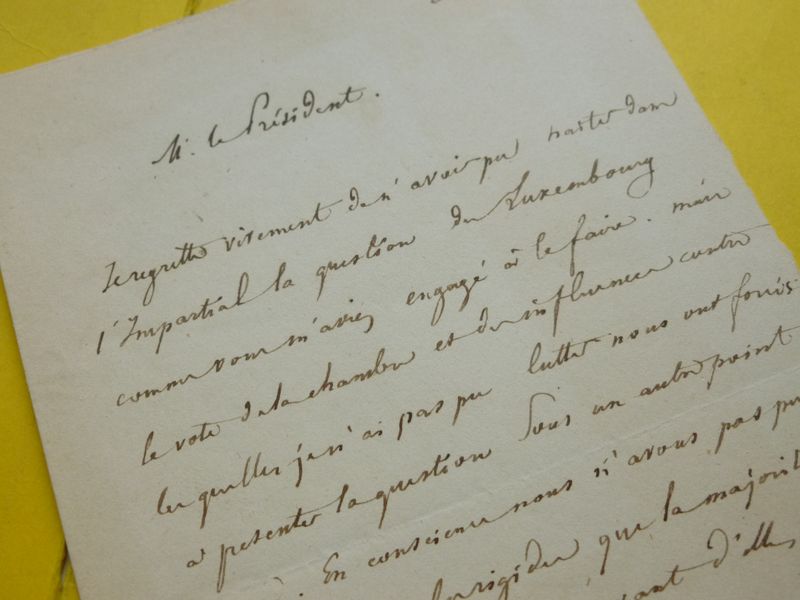 M. le Président.
Je regrette vivement de n'avoir pu traiter dans
l'Impartial la question du Luxembourg
comme vous m'aviez engagé à le faire. mais
le vote de la chambre et des influences contre
lesquelles je n'ai pas pu lutter nous ont forcés
a presenter la question sous un autre point
En conscience nous n'avons pas pu
que la majorit
d'elles